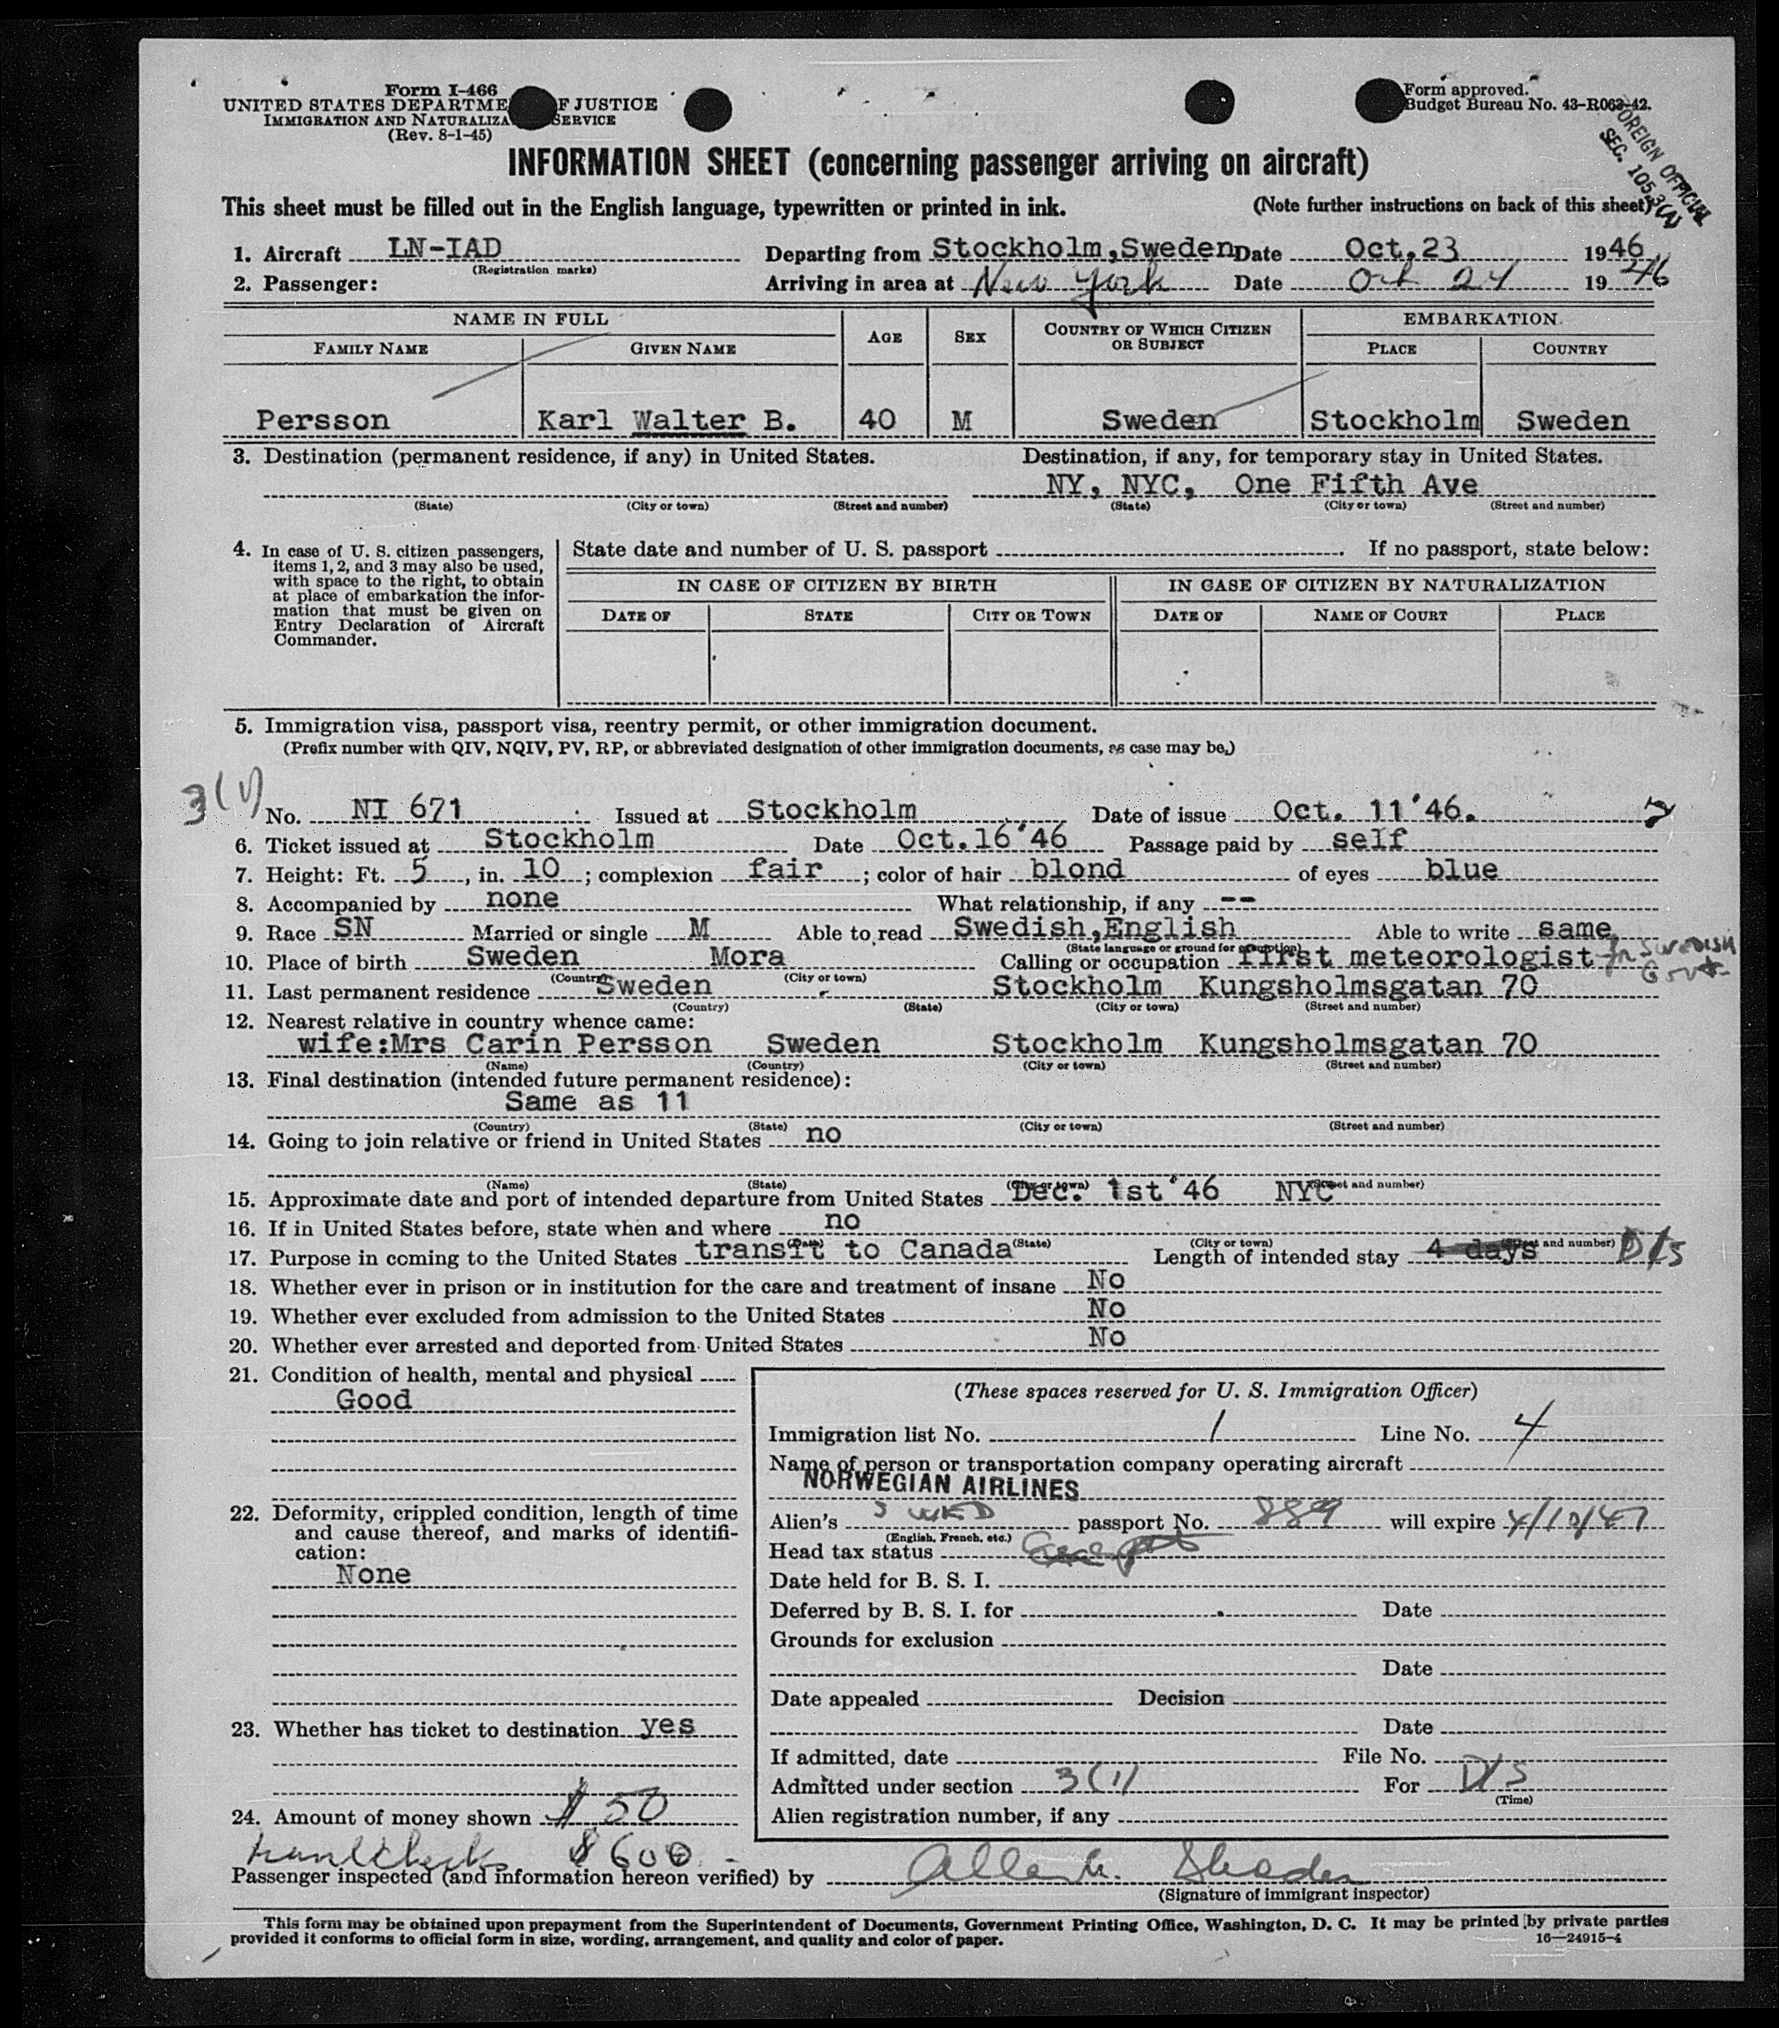 Form I-466
UNITED STATES DEPARTME F JUSTICE
IMMIGRATION AND NATURALIZA SERVICE
(Rev. 8-1-45)
Form approved.
Budget Bureau No. 43-R063-42.
FOREIGN OFFICIAL
SEC. 105.3(A)
INFORMATION SHEET (concerning passenger arriving on aircraft)
This sheet must be filled out in the English language, typewritten or printed in ink. (Note further instructions on back of this sheet)
1. Aircraft LN-IAD Departing from Stockholm,Sweden Date Oct.23 1946
(Registration marks)
2. Passenger: Arriving in area at New York Date Oct 24 1946
NAME IN FULL AGE SEX COUNTRY OF WHICH CITIZEN OR SUBJECT EMBARKATION
FAMILY NAME GIVEN NAME PLACE COUNTRY
Persson Karl Walter B. 40 M Sweden Stockholm Sweden
3. Destination (permanent residence, if any) in United States. Destination, if any, for temporary stay in United States.
NY, NYC, One Fifth Ave
(State) (City or town) (Street and number) (State) (City or town) (Street and number)
4. In case of U. S. citizen passengers,
items 1, 2, and 3 may also be used,
with space to the right, to obtain
at place of embarkation the infor-
mation that must be given on
Entry Declaration of Aircraft
Commander.
State date and number of U. S. passport . If no passport, state below:
IN CASE OF CITIZEN BY BIRTH IN CASE OF CITIZEN BY NATURALIZATION
DATE OF STATE CITY OR TOWN DATE OF NAME OF COURT PLACE
5. Immigration visa, passport visa, reentry permit, or other immigration document.
(Prefix number with QIV, NQIV, PV, RP, or abbreviated designation of other immigration documents, as case may be.)
3(1)
No. NI 671 Issued at Stockholm Date of issue Oct. 11'46.
6. Ticket issued at Stockholm Date Oct.16'46 Passage paid by self
7. Height: Ft. 5, in. 10; complexion fair; color of hair blond of eyes blue
8. Accompanied by none What relationship, if any --
9. Race SN Married or single M Able to read Swedish,English Able to write same
(State language or ground for exemption)
10. Place of birth Sweden Mora Calling or occupation first meteorologist for SWEDISH Govt
(Country) (City or town)
11. Last permanent residence Sweden Stockholm Kungsholmsgatan 70
(Country) (State) (City or town) (Street and number)
12. Nearest relative in country whence came:
wife:Mrs Carin Persson Sweden Stockholm Kungsholmsgatan 70
(Name) (Country) (City or town) (Street and number)
13. Final destination (intended future permanent residence):
Same as 11
(Country) (State) (City or town) (Street and number)
14. Going to join relative or friend in United States no
(Name) (State) (City or town) (Street and number)
15. Approximate date and port of intended departure from United States Dec. 1st'46 NYC
16. If in United States before, state when and where no
(Date) (State) (City or town) (Street and number)
17. Purpose in coming to the United States transit to Canada Length of intended stay 4 days D/S
18. Whether ever in prison or in institution for the care and treatment of insane No
19. Whether ever excluded from admission to the United States No
20. Whether ever arrested and deported from United States No
21. Condition of health, mental and physical
Good
22. Deformity, crippled condition, length of time
and cause thereof, and marks of identifi-
cation:
None
23. Whether has ticket to destination yes
24. Amount of money shown $ 50
$600.-
(These spaces reserved for U. S. Immigration Officer)
Immigration list No. 1 Line No. 4
Name of person or transportation company operating aircraft
NORWEGIAN AIRLINES
Alien's SWED passport No. 889 will expire 4/10/47
(English, French, etc.)
Head tax status Exempt
Date held for B. S. I.
Deferred by B. S. I. for Date
Grounds for exclusion
Date
Date appealed Decision
Date
If admitted, date File No.
Admitted under section 3(1) For D/S
(Time)
Alien registration number, if any
Passenger inspected (and information hereon verified) by
(Signature of immigrant inspector)
This form may be obtained upon prepayment from the Superintendent of Documents, Government Printing Office, Washington, D. C. It may be printed by private parties
provided it conforms to official form in size, wording, arrangement, and quality and color of paper. 16—24915-4